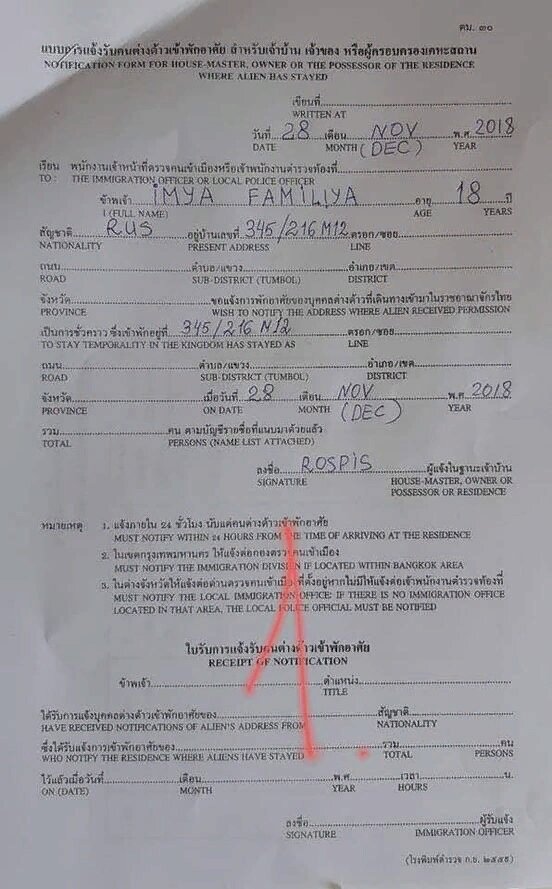 ตม. ๓๐
แบบการแจ้งรับคนต่างด้าวเข้าพักอาศัย สำหรับเจ้าบ้าน เจ้าของ หรือผู้ครอบครองเคหะสถาน
NOTIFICATION FORM FOR HOUSE-MASTER, OWNER OR THE POSSESSOR OF THE RESIDENCE
WHERE ALIEN HAS STAYED
เขียนที่
WRITTEN AT
วันที่ 28 เดือน NOV พ.ศ. 2018
DATE MONTH (DEC) YEAR
เรียน พนักงานเจ้าหน้าที่ตรวจคนเข้าเมืองหรือเจ้าพนักงานตำรวจท้องที่
TO : THE IMMIGRATION OFFICER OR LOCAL POLICE OFFICER
ข้าพเจ้า IMYA FAMILIYA อายุ 18 ปี
I (FULL NAME) AGE YEARS
สัญชาติ RUS อยู่บ้านเลขที่ 345/216 M12 ตรอก/ซอย
NATIONALITY PRESENT ADDRESS LINE
ถนน ตำบล/แขวง อำเภอ/เขต
ROAD SUB-DISTRICT (TUMBOL) DISTRICT
จังหวัด ขอแจ้งการพักอาศัยของบุคคลต่างด้าวที่เดินทางเข้ามาในราชอาณาจักรไทย
PROVINCE WISH TO NOTIFY THE ADDRESS WHERE ALIEN RECEIVED PERMISSION
เป็นการชั่วคราว ซึ่งเข้าพักอยู่ที่ 345/216 M12 ตรอก/ซอย
TO STAY TEMPORALITY IN THE KINGDOM HAS STAYED AS LINE
ถนน ตำบล/แขวง อำเภอ/เขต
ROAD SUB-DISTRICT (TUMBOL) DISTRICT
จังหวัด เมื่อวันที่ 28 เดือน NOV พ.ศ. 2018
PROVINCE ON DATE MONTH (DEC) YEAR
รวม คน ตามบัญชีรายชื่อที่แนบมาด้วยแล้ว
TOTAL PERSONS (NAME LIST ATTACHED)
ลงชื่อ ROSPIS ผู้แจ้งในฐานะเจ้าบ้าน
SIGNATURE HOUSE-MASTER, OWNER OR
POSSESSOR OR RESIDENCE
หมายเหตุ 1. แจ้งภายใน 24 ชั่วโมง นับแต่คนต่างด้าวเข้าพักอาศัย
MUST NOTIFY WITHIN 24 HOURS FROM THE TIME OF ARRIVING AT THE RESIDENCE
2. ในเขตกรุงเทพมหานคร ให้แจ้งต่อกองตรวจคนเข้าเมือง
MUST NOTIFY THE IMMIGRATION DIVISION IF LOCATED WITHIN BANGKOK AREA
3. ในต่างจังหวัดให้แจ้งต่อด่านตรวจคนเข้าเมืองที่ตั้งอยู่หากไม่มีให้แจ้งต่อเจ้าพนักงานตำรวจท้องที่
MUST NOTIFY THE LOCAL IMMIGRATION OFFICE: IF THERE IS NO IMMIGRATION OFFICE
LOCATED IN THAT AREA, THE LOCAL POLICE OFFICIAL MUST BE NOTIFIED
ใบรับการแจ้งรับคนต่างด้าวเข้าพักอาศัย
RECEIPT OF NOTIFICATION
ข้าพเจ้า ตำแหน่ง
TITLE
ได้รับการแจ้งบุคคลต่างด้าวเข้าพักอาศัยของ สัญชาติ
HAVE RECEIVED NOTIFICATIONS OF ALIEN'S ADDRESS FROM NATIONALITY
ซึ่งได้รับแจ้งการเข้าพักอาศัยของ รวม คน
WHO NOTIFY THE RESIDENCE WHERE ALIENS HAVE STAYED TOTAL PERSONS
ไว้แล้วเมื่อวันที่ เดือน พ.ศ. เวลา น.
ON (DATE) MONTH YEAR HOURS
ลงชื่อ ผู้รับแจ้ง
SIGNATURE IMMIGRATION OFFICER
(โรงพิมพ์ตำรวจ ก.ย. ๒๕๔๕)
1.